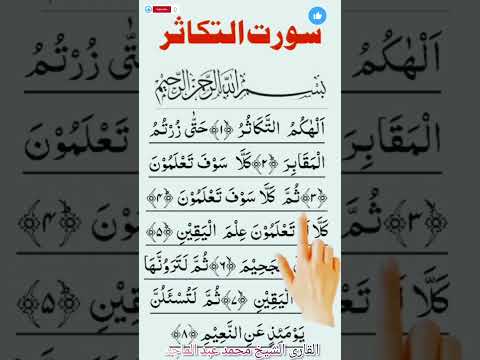 سورت التكاثر
بِسْمِ اللّٰهِ الرَّحْمٰنِ الرَّحِيْمِ
اَلْهٰكُمُ التَّكَاثُرُ ﴿۱﴾ حَتّٰى زُرْتُمُ
الْمَقَابِرَ ﴿۲﴾ كَلَّا سَوْفَ تَعْلَمُوْنَ
﴿۳﴾ ثُمَّ كَلَّا سَوْفَ تَعْلَمُوْنَ ﴿۴﴾
كَلَّا تَعْلَمُوْنَ عِلْمَ الْيَقِيْنِ ﴿۵﴾
﴿۶﴾ ثُمَّ لَتَرَوُنَّهَا
الْيَقِيْنِ ﴿۷﴾ ثُمَّ لَتُسْئَلُنَّ
يَوْمَئِذٍ عَنِ النَّعِيْمِ ﴿۸﴾
القارئ الشيخ محمد عبد